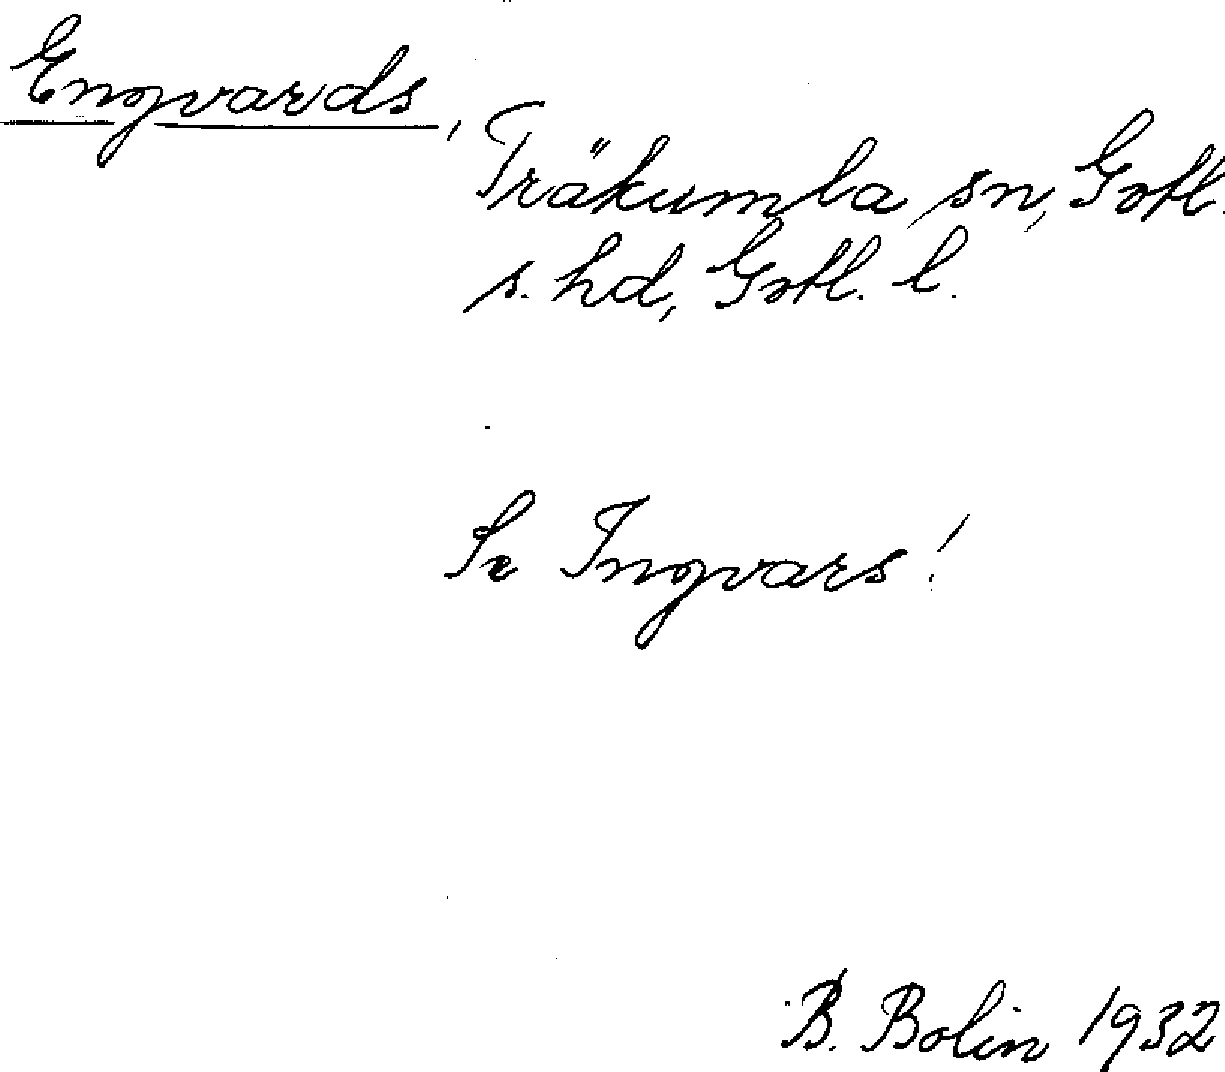 Engvards,
Träkumla sn, Gotl.
s. hd, Gotl. l.
Se Ingvars!
B. Bolin 1932